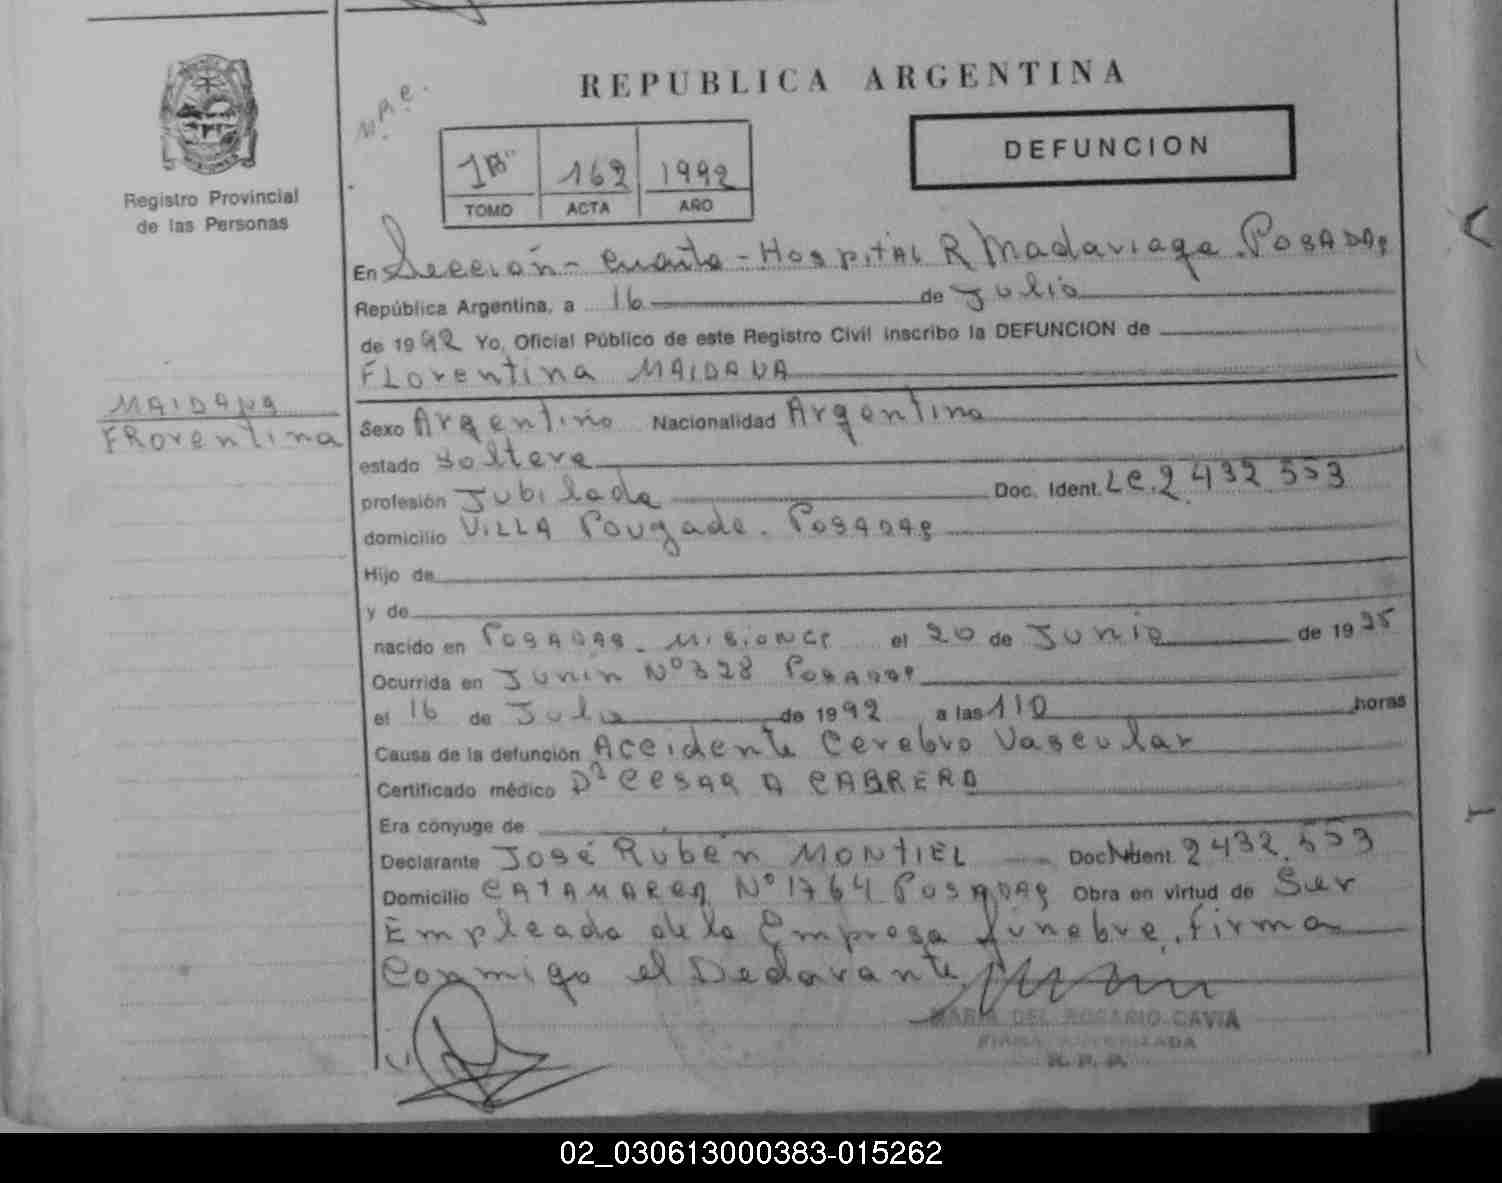 REPUBLICA ARGENTINA
DEFUNCION
Registro Provincial
de las Personas
1B" 162 1992
TOMO ACTA AÑO
En Sección - Cuarta - Hospital R Madariaga. POSADAS
República Argentina, a 16 de Julio
de 1992 Yo, Oficial Público de este Registro Civil inscribo la DEFUNCION de
Florentina MAIDANA
MAIDANA
Florentina
Sexo Argentino Nacionalidad Argentina
estado Soltera
profesión Jubilada Doc. Ident. LC. 2.432 553
domicilio VILLA Pougade. POSADAS
Hijo de
y de
nacido en POSADAS - MISIONES el 20 de Junio de 19
Ocurrida en Junin Nº 328 POSADAS
el 16 de Julio de 1992 a las 110 horas
Causa de la defunción Accidente Cerebro Vascular
Certificado médico Dr CESAR A CABRERA
Era cónyuge de
Declarante José Rubén MONTIEL Doc. Ident. 2432.553
Domicilio CATAMARCA Nº 1764 POSADAS Obra en virtud de Ser
Empleado de la Empresa funebre. firma
Conmigo el Declarante
MARIA DEL ROSARIO CAVIA
FIRMA AUTORIZADA
R. P. P.
02_030613000383-015262